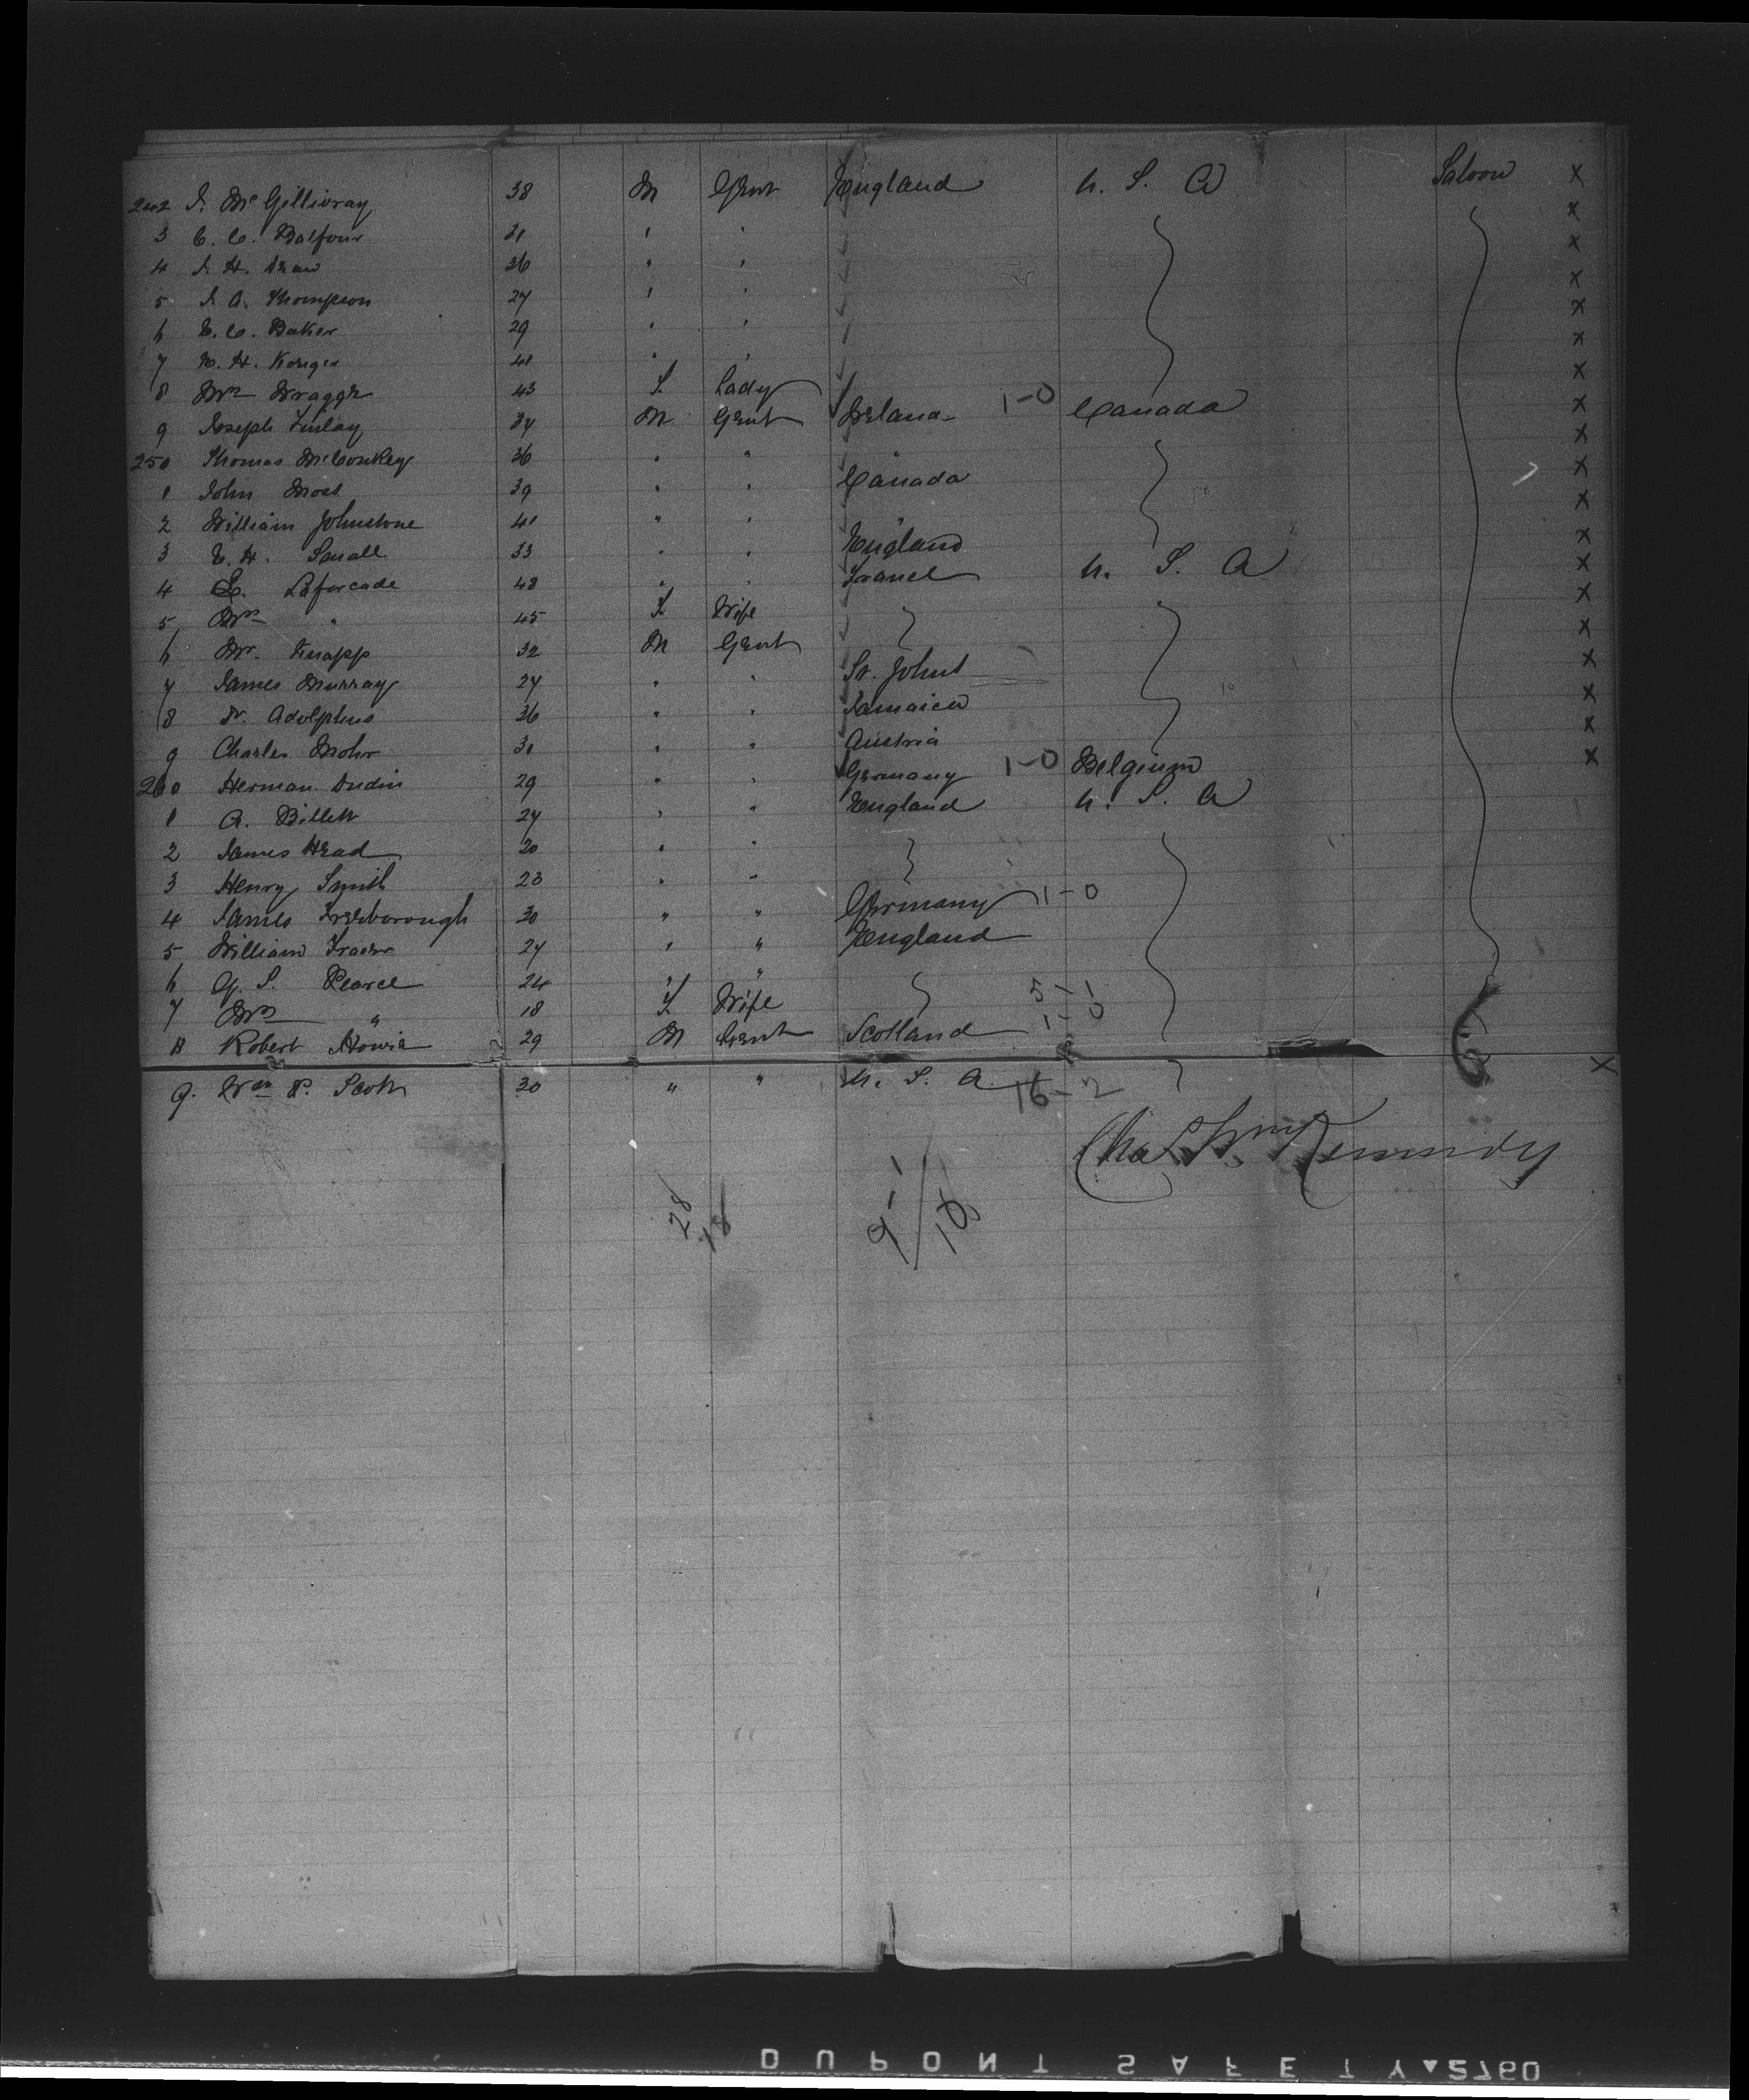 242 J. McGillivray 38 M Gent England U. S. A Saloon X
3 C. C. Balfour 31 " " X
4 J. H. 36 " " X
5 J. A. Thompson 27 " " X
6 E. C. Baker 29 " " X
7 41 " " X
8 Mrs Wragge 43 F. Lady X
9 Joseph Finlay 34 M Gent Ireland 1-0 Canada X
250 Thomas McConkey 36 " " " X
1 John 39 " " Canada X
2 William Johnstone 41 " " " X
3 E. H. Small 33 " " England X
4 Laforcade 48 " " France U. S. A X
5 Mrs " 45 F. Wife X
6 Mr. Knapp 32 M Gent X
7 James Murray 27 " " St. Johns X
8 Adolphus 36 " " Jamaica X
9 Charles Mohr 31 " " Austria X
260 Herman 29 " " Germany 1-0 Belgium X
1 A. Billett 27 " " England U. S. A
2 James Head 30 " "
3 Henry Smith 23 " "
4 James 30 " " Germany 1-0
5 William Fraser 27 " " England
6 G. S. Pearce 24 " "
7 Mrs " 18 F. Wife 5-1
8 Robert Howie 29 M Gent Scotland 1-0
9. Wm P. Scott 30 " " U. S. A. 16-2 X
Kennedy
28
18
9-1
DUPONT SAFETY 2760